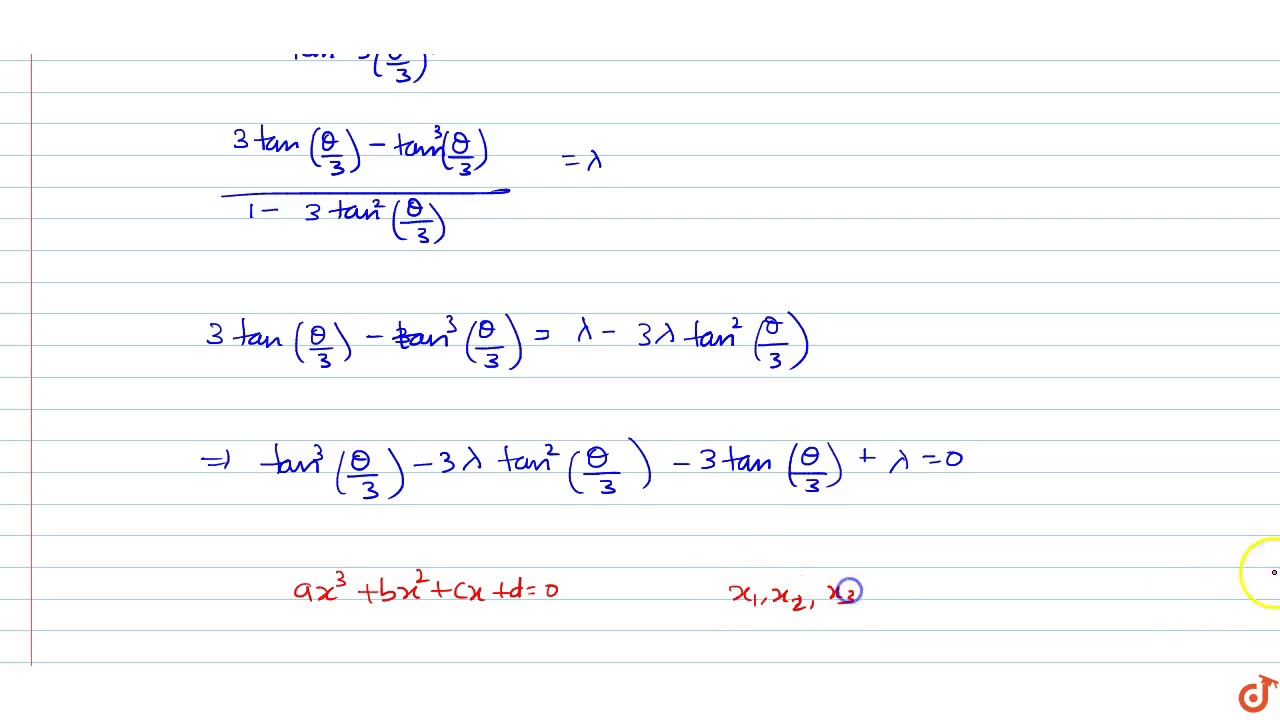 3 tan (θ/3) − tan³(θ/3)
= λ
1 − 3 tan² (θ/3)
3 tan (θ/3) − tan³ (θ/3) = λ − 3λ tan² (θ/3)
⇒ tan³ (θ/3) − 3λ tan² (θ/3) − 3 tan (θ/3) + λ = 0
ax³ + bx² + cx + d = 0 x₁, x₂, x₃